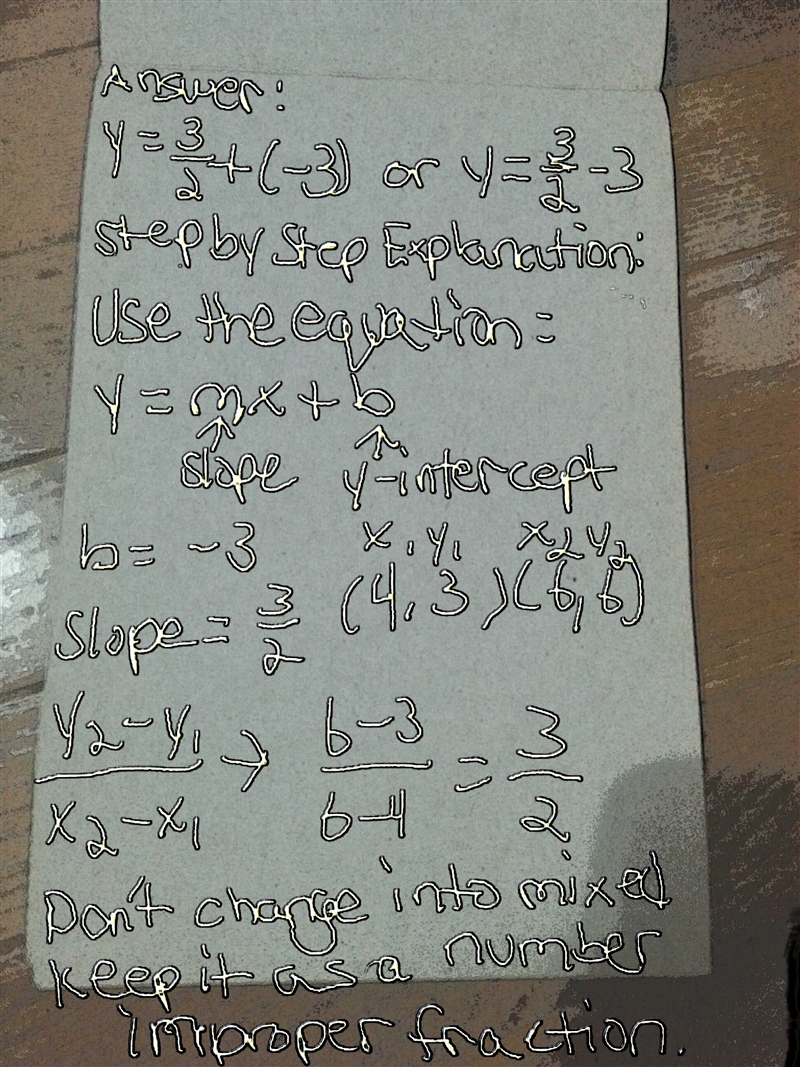 Answer:
y = 3/2 + (-3) or y = 3/2 - 3
step by Step Explanation:
Use the equation =
y = mx + b
↑ ↑
slope y-intercept
b = -3 x₁ y₁ x₂ y₂
slope = 3/2 (4, 3) (6, 6)
y₂ - y₁ / x₂ - x₁ → 6 - 3 / 6 - 4 = 3/2
Don't change into mixed
keep it as a number
improper fraction.